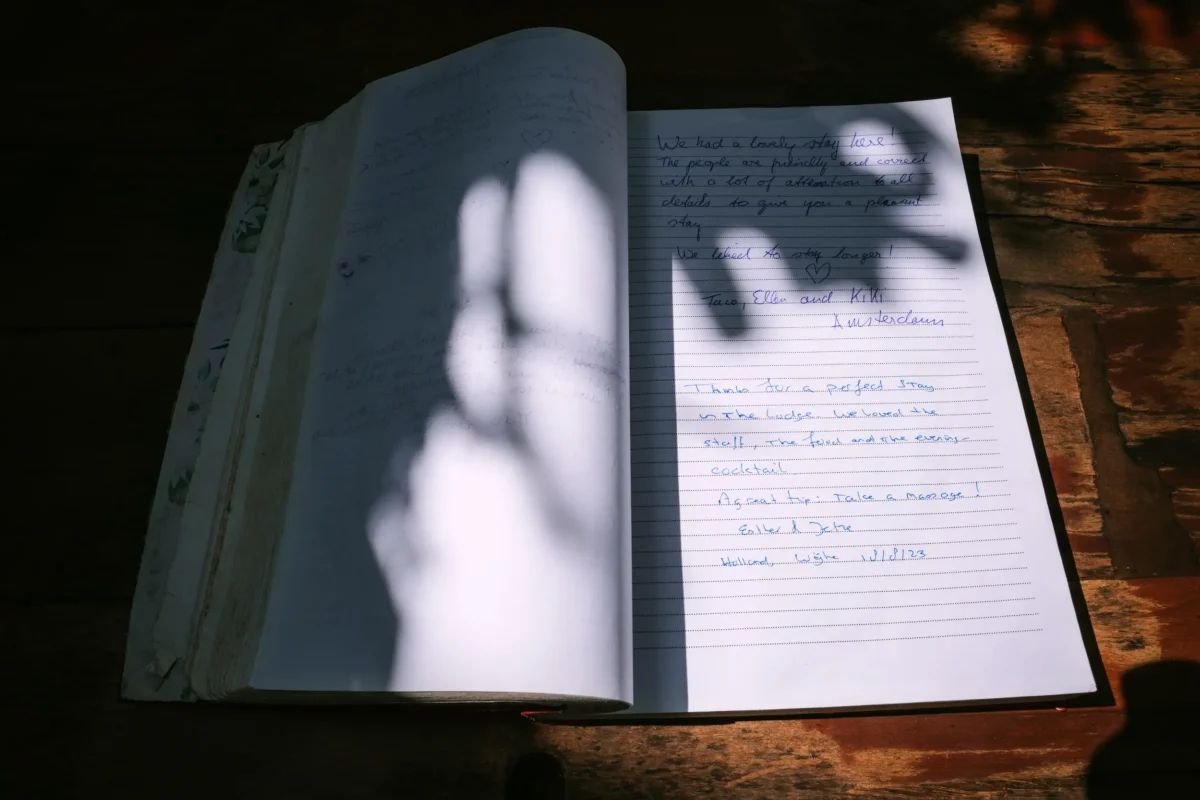 We had a lovely stay here!
The people are friendly and correct
with a lot of attention to all
details to give you a pleasant
stay
We liked to stay longer!
Ellen and Kiki
Amsterdam
Thanks for a perfect stay
in the Lodge. We loved the
staff, the food and the evening-
cocktail
A great tip: Take a massage!
Esther & Jetze
Holland, Wijhe 18/8/23